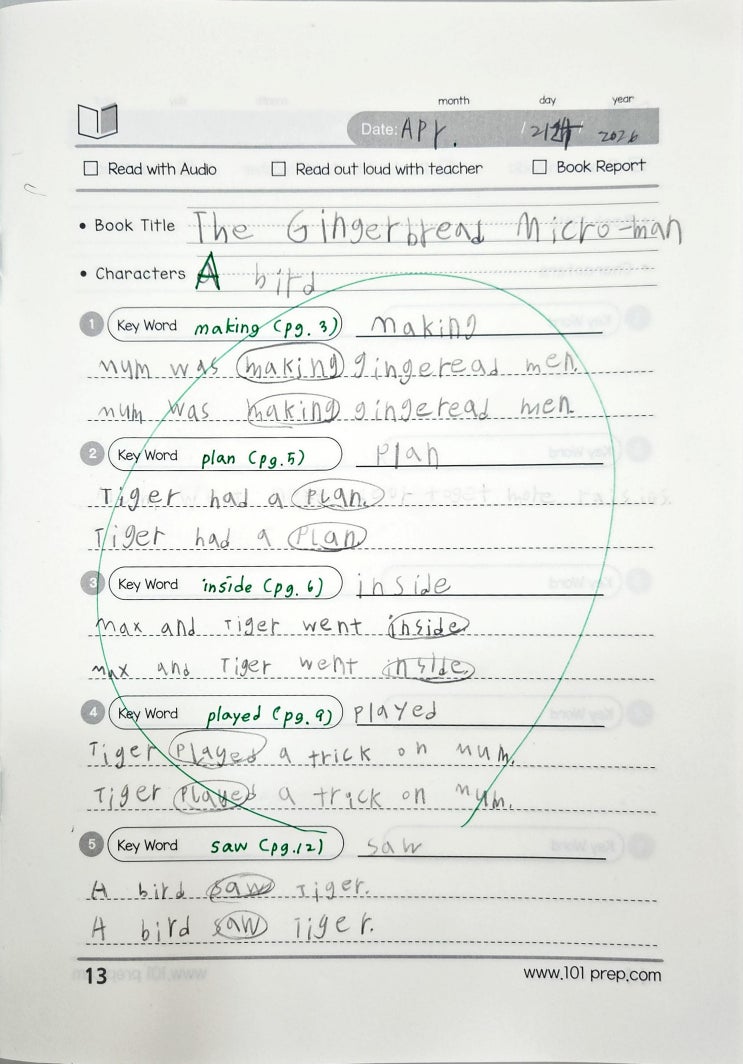 month day year
Date: Apr. / 2026
Read with Audio Read out loud with teacher Book Report
• Book Title The Gingerbread Micro-man
• Characters A bird
1 Key Word making (pg. 3) making
mum was making gingeread men.
mum was making gingeread men.
2 Key Word plan (pg. 5) plan
Tiger had a plan.
Tiger had a plan
3 Key Word inside (pg. 6) inside
max and Tiger went inside.
max and Tiger went inside.
4 Key Word played (pg. 9) played
Tiger played a trick on mum.
Tiger played a trick on mum.
5 Key Word saw (pg. 12) saw
A bird saw Tiger.
A bird saw Tiger.
13 www.101 prep.com